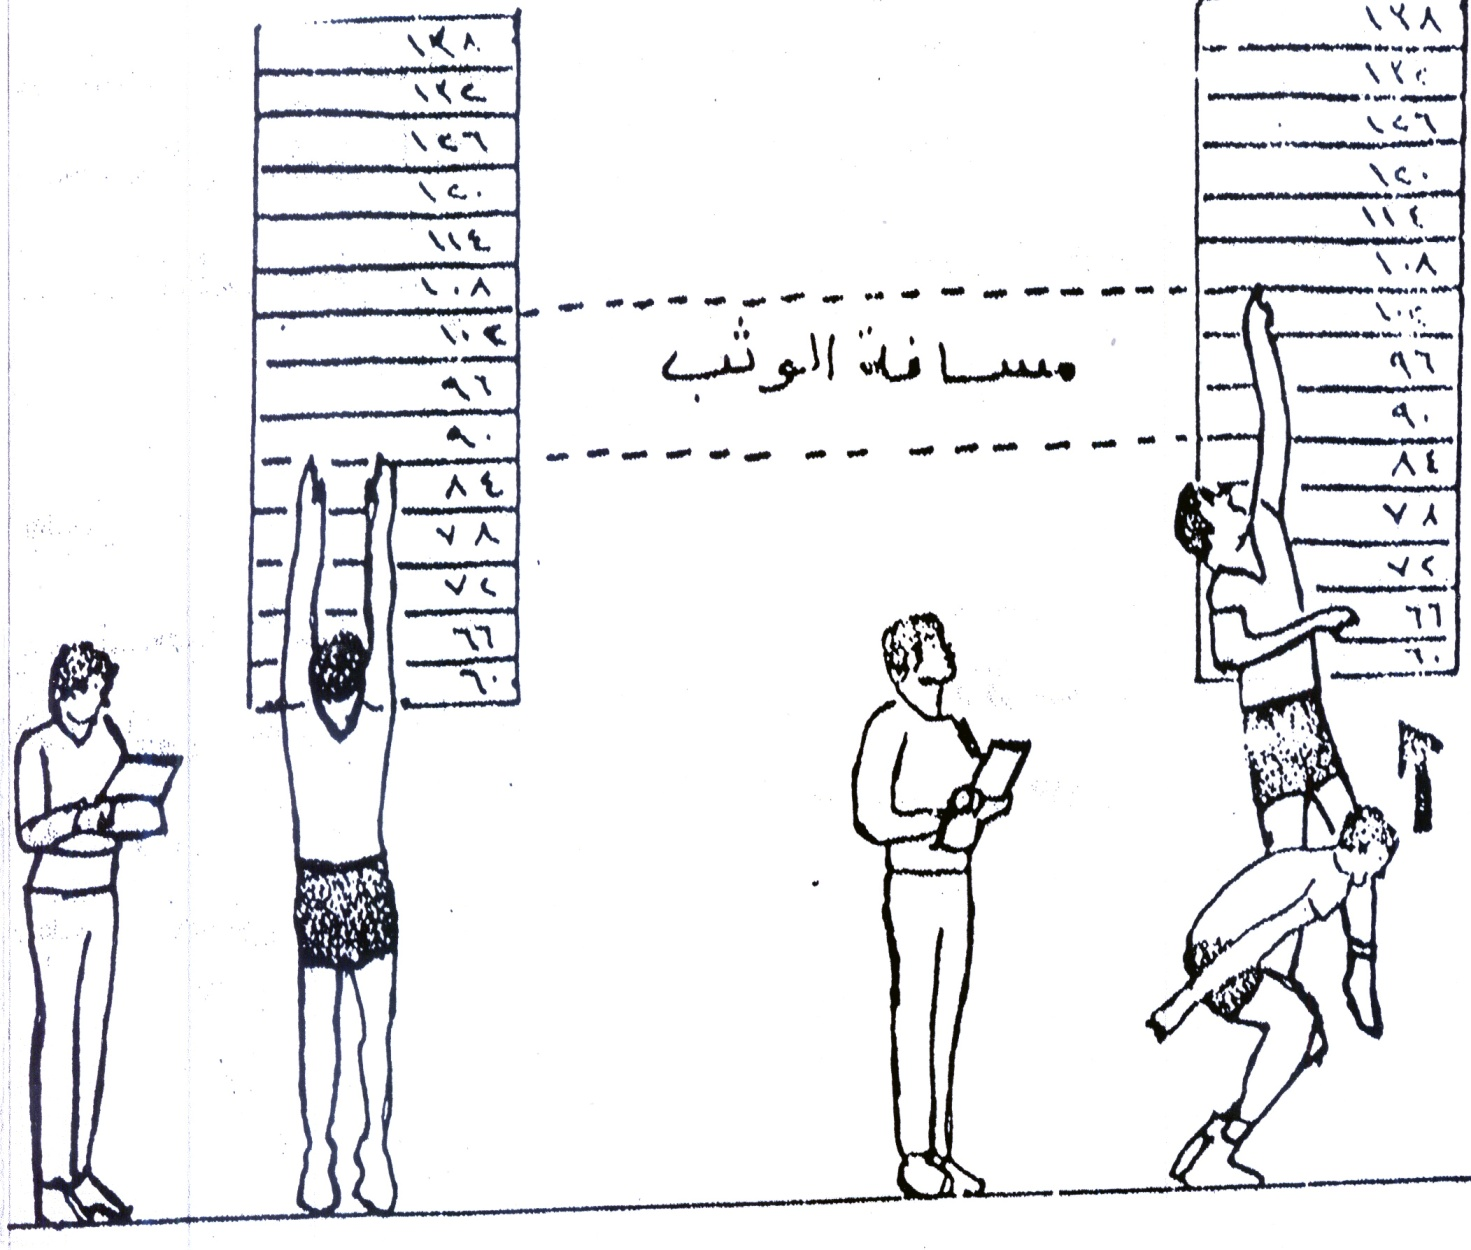 ١٣٨
١٣٢
١٢٦
١٢٠
١١٤
١٠٨
١٠٢
٩٦
٩٠
٨٤
٧٨
٧٢
٦٦
٦٠
مسافة الوثب
١٣٨
١٣٢
١٢٦
١٢٠
١١٤
١٠٨
١٠٢
٩٦
٩٠
٨٤
٧٨
٧٢
٦٦
٦٠